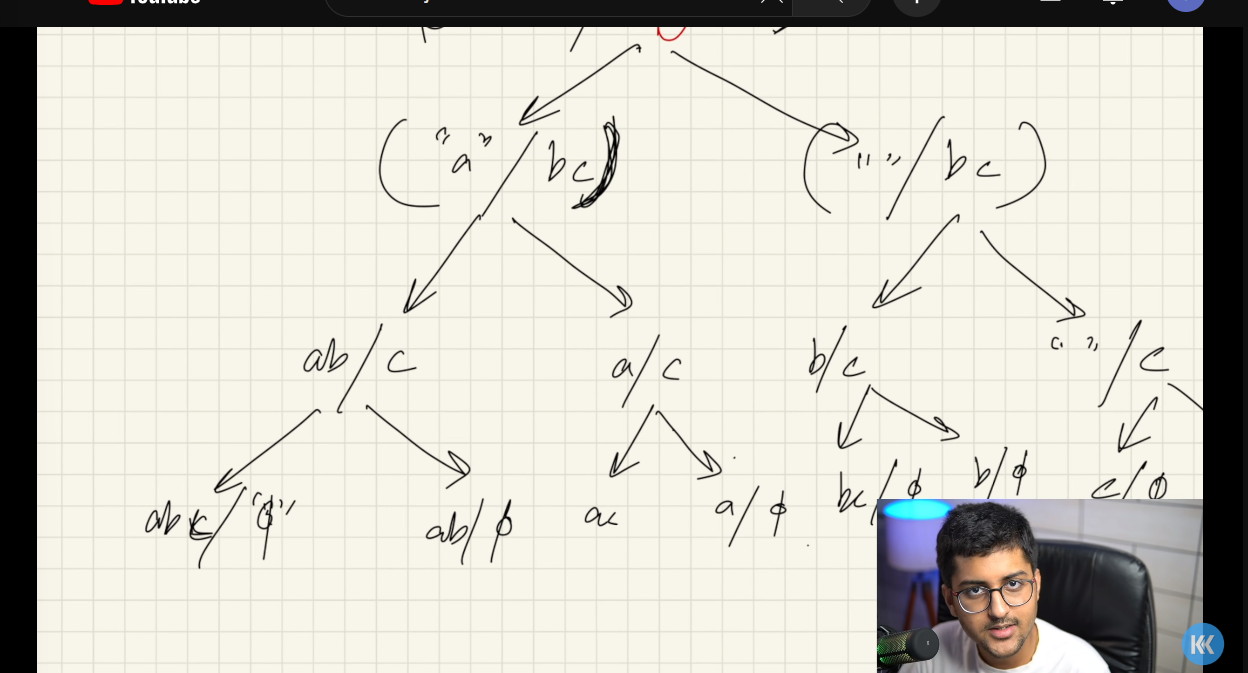 YouTube
("a"/bc) (""/bc)
ab/c a/c b/c " "/c
abc/"ϕ" ab/ϕ ac a/ϕ bc/ϕ b/ϕ c/ϕ
KK